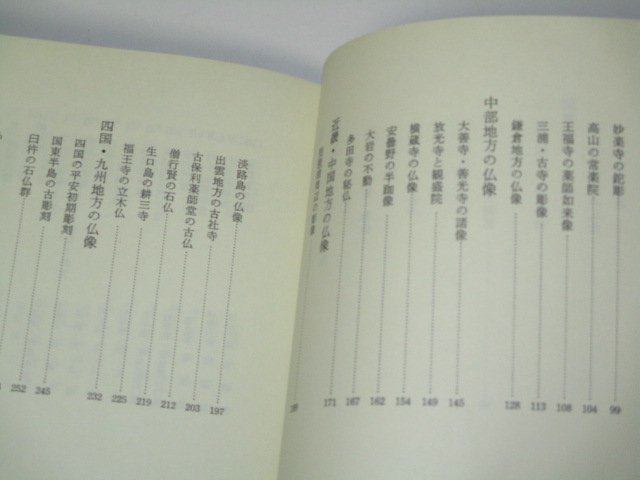 妙楽寺の鉈彫 99
高山の常楽院 104
王福寺の薬師如来像 108
三浦・古寺の彫像 113
鎌倉地方の仏像 128
中部地方の仏像
大善寺・善光寺の諸像 145
放光寺と観盛院 149
横蔵寺の仏像 154
安曇野の半跏像 162
大岩の不動 167
多田寺の秘仏 171
近畿・中国地方の仏像
淡路島の仏像 197
出雲地方の古社寺 203
古保利薬師堂の古仏 212
僧行賢の石仏 219
生口島の耕三寺 225
福王寺の立木仏 232
四国・九州地方の仏像
四国の平安初期彫刻 245
国東半島の古彫刻 252
臼杵の石仏群